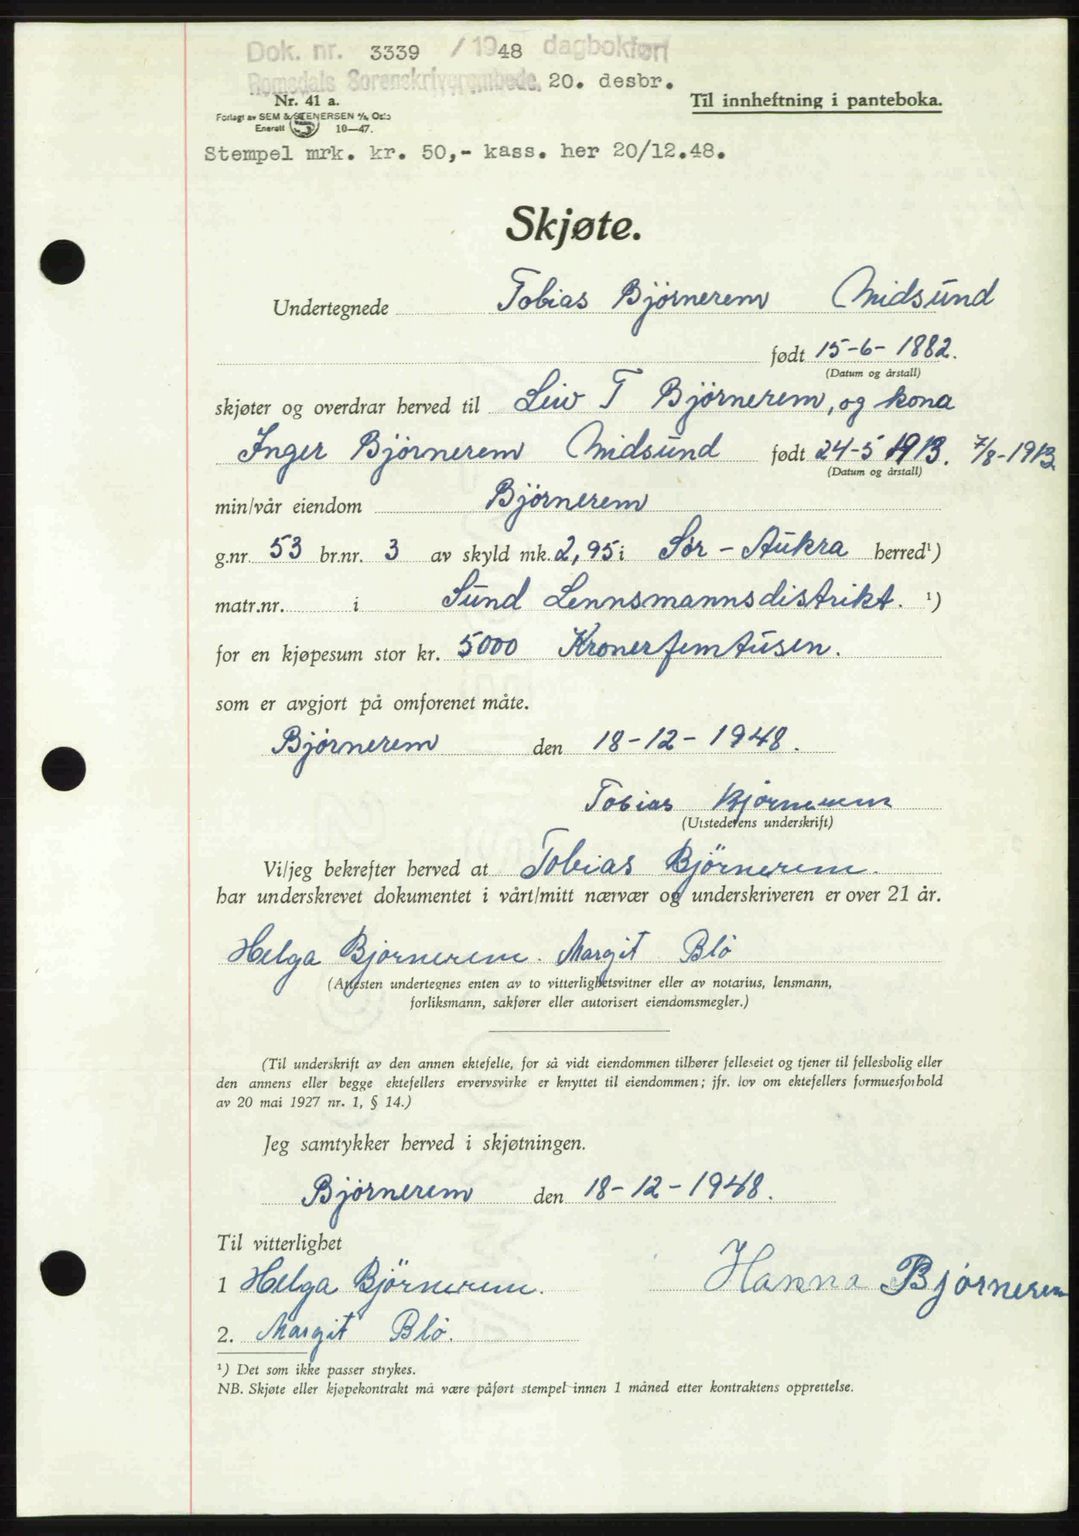 Dok. nr. 3339 / 1948 dagbokført
Romsdals Sorenskriverembede, 20. desbr.
Nr. 41 a.
Til innheftning i panteboka.
Forlagt av SEM & STENERSEN A/s, Oslo
Enerett 10—47.
Stempel mrk. kr. 50,- kass. her 20/12.48.
Skjøte.
Undertegnede Tobias Björnerem Midsund
født 15-6-1882.
(Datum og årstall)
skjøter og overdrar herved til Leiv T Björnerem, og kona
Inger Björnerem Midsund født 24-5 1913. 7/8-1913.
(Datum og årstall)
min/vår eiendom Björnerem
g.nr. 53 br.nr. 3 av skyld mk. 2,95 i Sör-Aukra herred¹)
matr.nr. i Sund Lennsmannsdistrikt. ¹)
for en kjøpesum stor kr. 5000 Kroner femtusen.
som er avgjort på omforenet måte.
Björnerem den 18-12-1948.
Tobias Björnerem
(Utstederens underskrift)
Vi/jeg bekrefter herved at Tobias Björnerem.
har underskrevet dokumentet i vårt/mitt nærvær og underskriveren er over 21 år.
Helga Björnerem. Margit Blö
(Attesten undertegnes enten av to vitterlighetsvitner eller av notarius, lensmann,
forliksmann, sakfører eller autorisert eiendomsmegler.)
(Til underskrift av den annen ektefelle, for så vidt eiendommen tilhører felleseiet og tjener til fellesbolig eller
den annens eller begge ektefellers ervervsvirke er knyttet til eiendommen; jfr. lov om ektefellers formuesforhold
av 20 mai 1927 nr. 1, § 14.)
Jeg samtykker herved i skjøtningen.
Björnerem den 18-12-1948.
Til vitterlighet
1 Helga Björnerem. Hanna Björnerem
2. Margit Blö.
¹) Det som ikke passer strykes.
NB. Skjøte eller kjøpekontrakt må være påført stempel innen 1 måned etter kontraktens opprettelse.